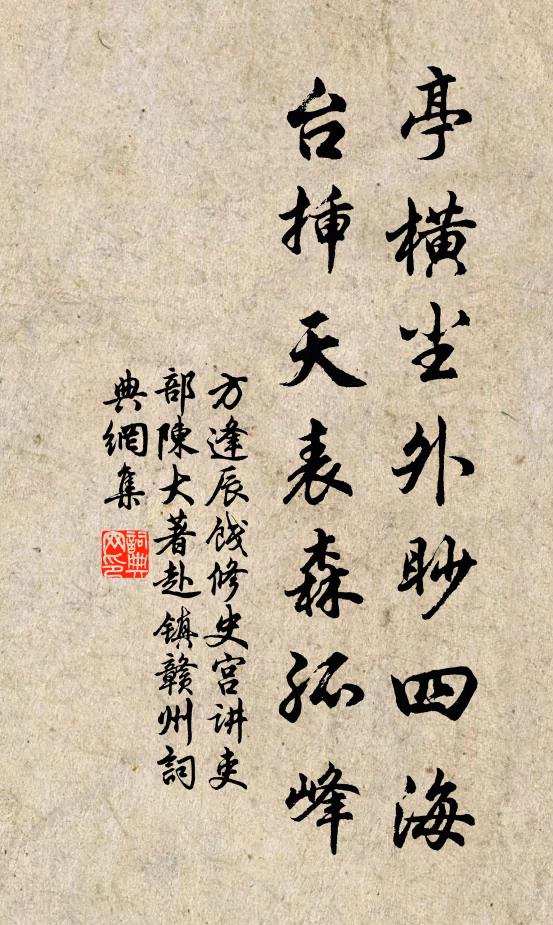 亭橫尘外眇四海
台揷天表森孤峰
方逢辰餞修史宫讲吏
部陳大著赴镇赣州詞
典網集
詞典
网印